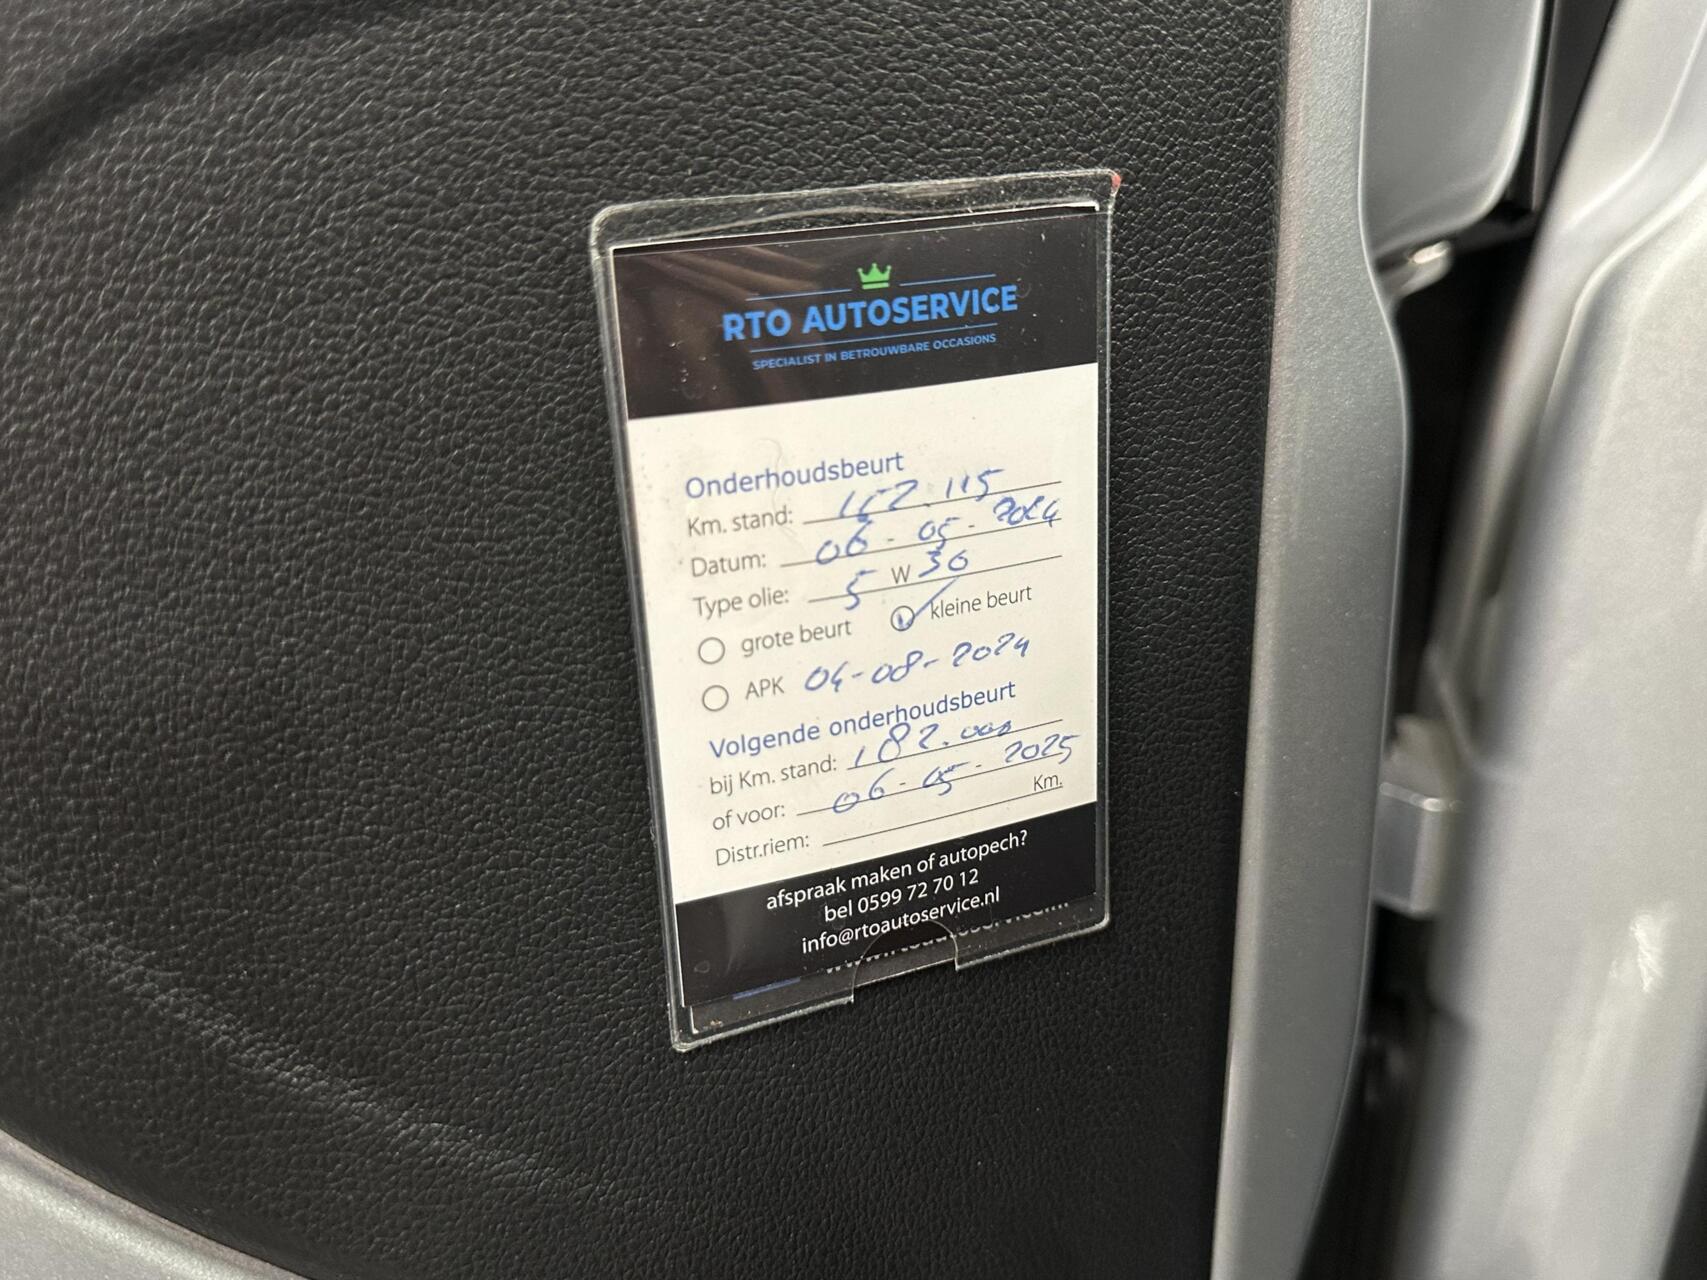 RTO AUTOSERVICE
SPECIALIST IN BETROUWBARE OCCASIONS
Onderhoudsbeurt
Km. stand: 152.115
Datum: 06-05-2024
Type olie: 5 W 30
grote beurt kleine beurt
APK 04-08-2024
Volgende onderhoudsbeurt
bij Km. stand: 182.000
of voor: 06-05-2025
Distr.riem: Km.
afspraak maken of autopech?
bel 0599 72 70 12
info@rtoautoservice.nl